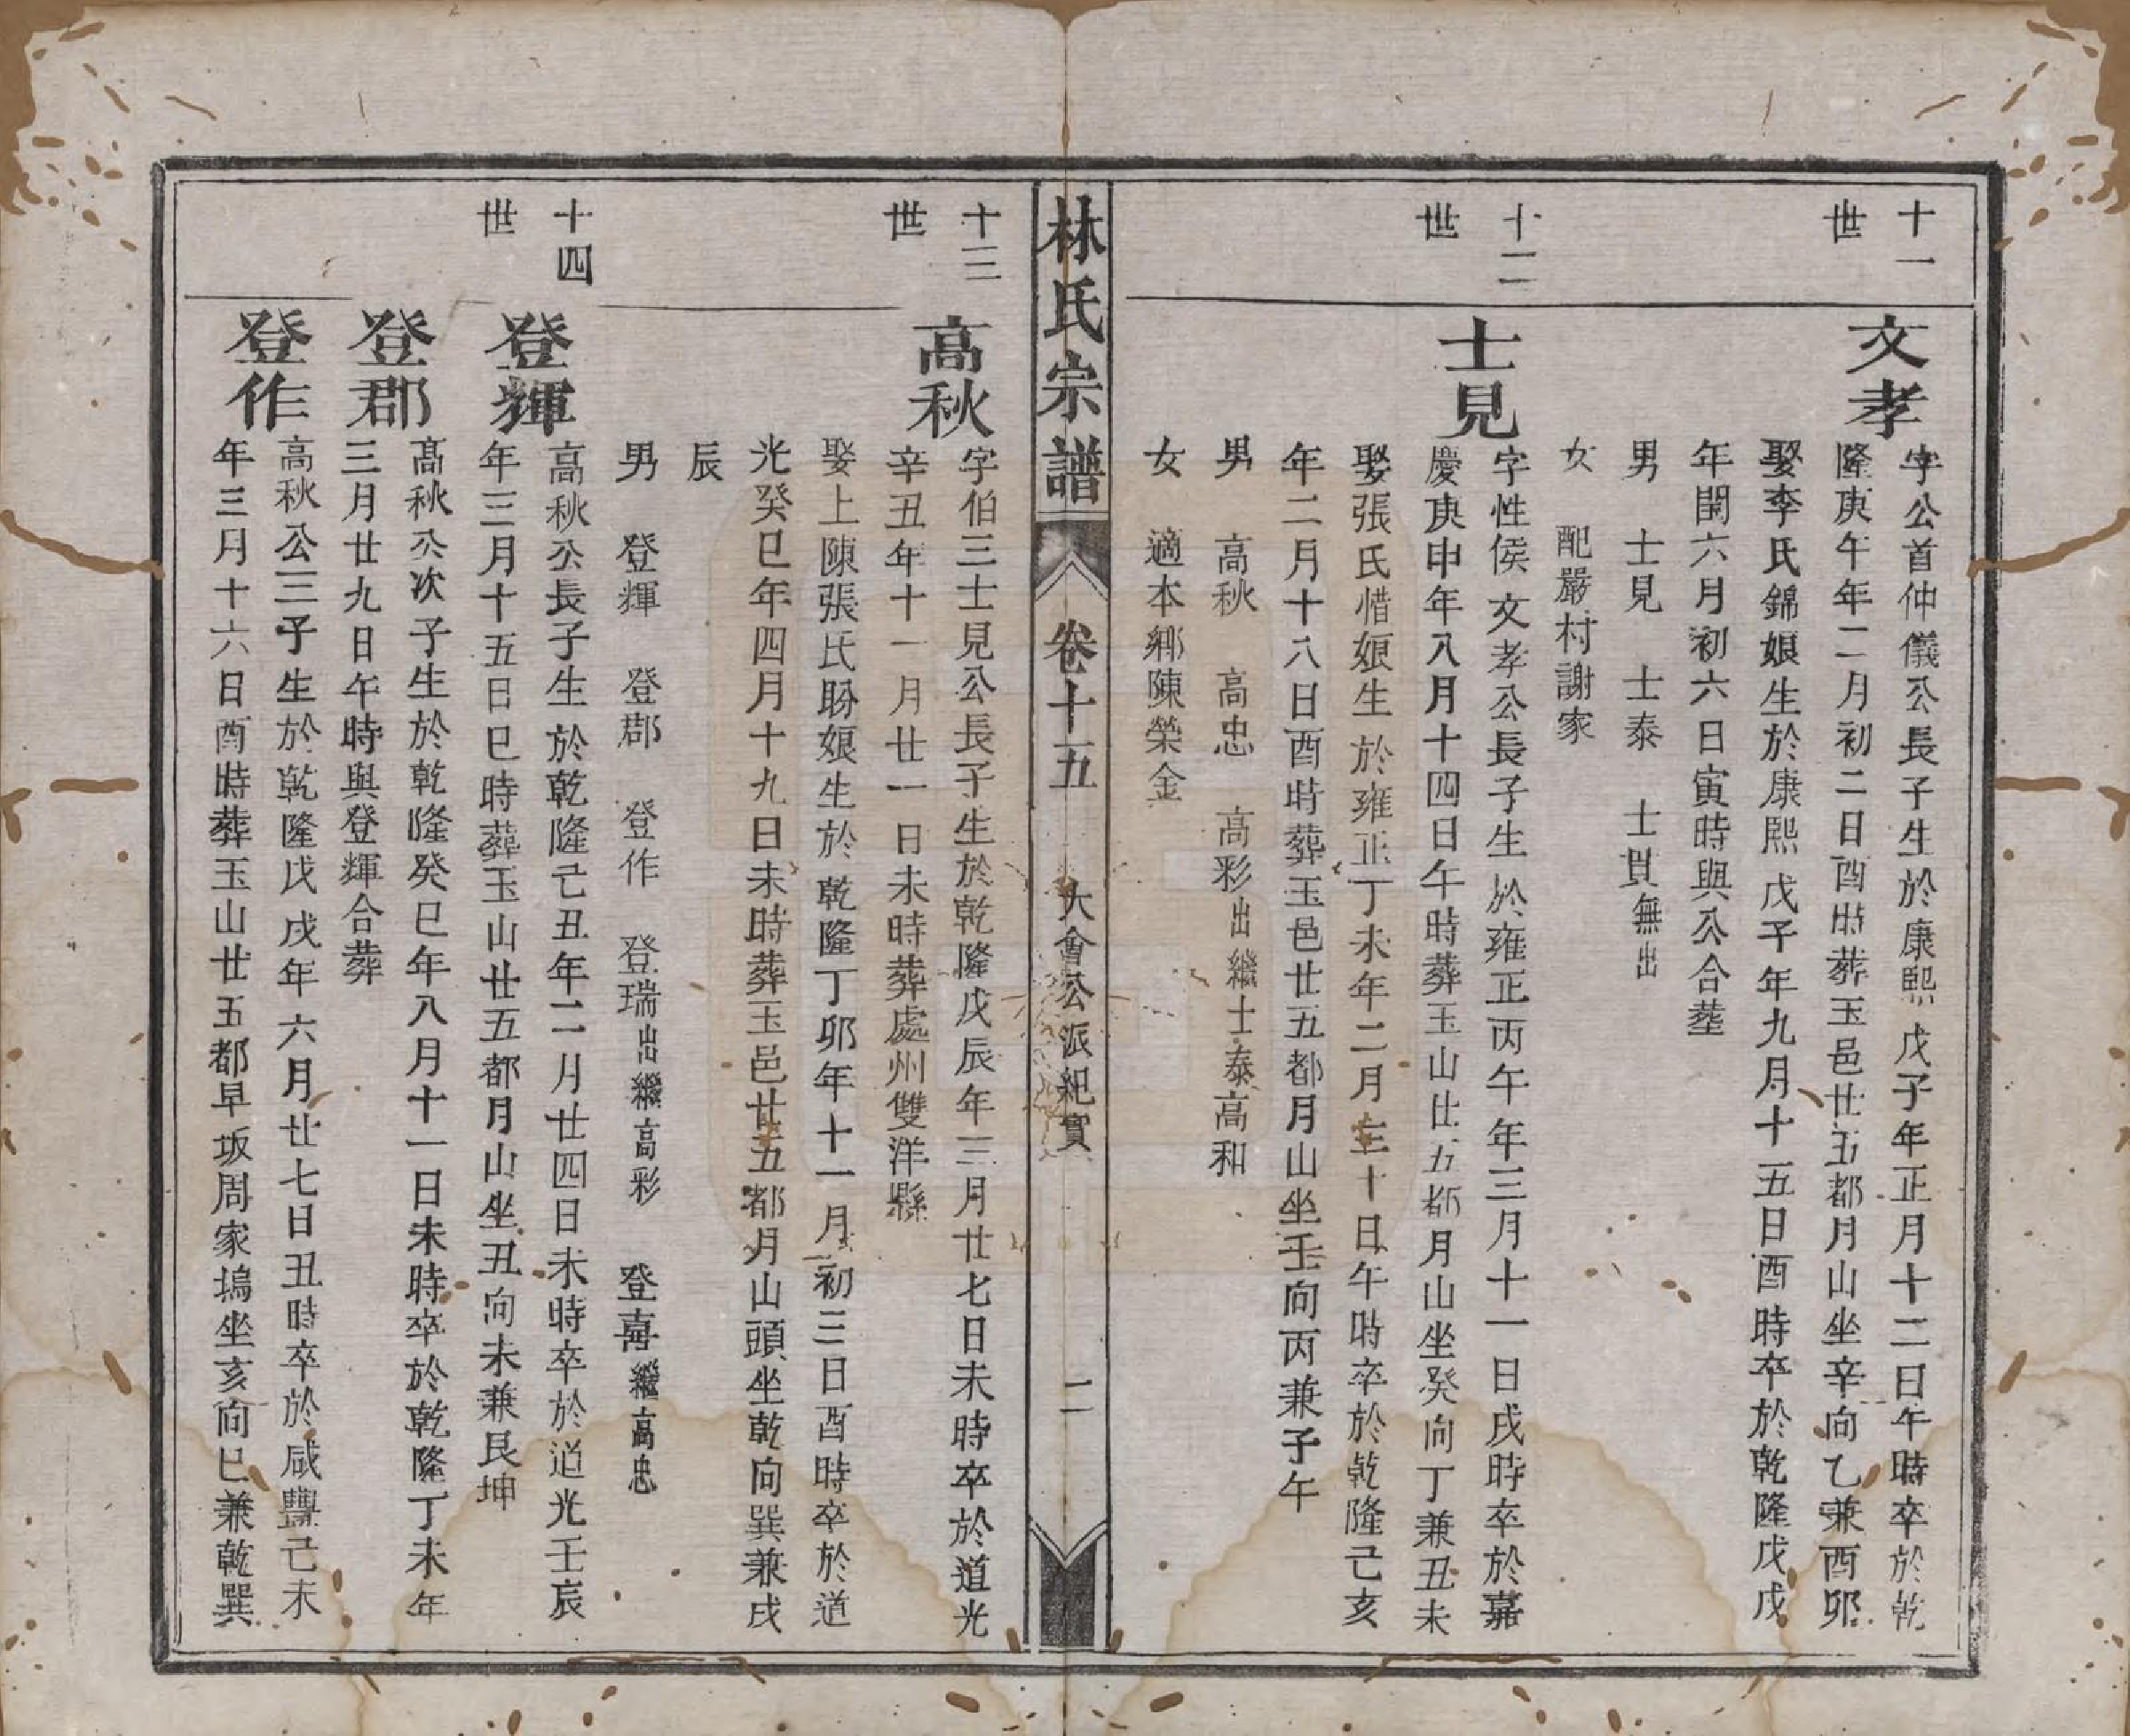 十一
世
文孝
字公首仲儀公長子生於康熙戊子年正月十二日午時卒於乾
隆庚午年二月初二日酉時葬玉邑廿五都月山坐辛向乙兼酉卯
娶李氏錦娘生於康熙戊子年九月十五日酉時卒於乾隆戊戌
年閏六月初六日寅時與公合塟
男 士見 士泰 士貝無出
女 配嚴村謝家
十二
世
士見
字性侯文孝公長子生於雍正丙午年三月十一日戌時卒於嘉
慶庚申年八月十四日午時葬玉山廿五都月山坐癸向丁兼丑未
娶張氏惜娘生於雍正丁未年二月三十日午時卒於乾隆己亥
年二月十八日酉時葬玉邑廿五都月山坐壬向丙兼子午
男 高秋 高忠 高彩出繼士泰高和
女 適本鄉陳榮金
林氏宗譜 卷十五 大會公派紀實 二
十三
世
高秋
字伯三士見公長子生於乾隆戊辰年三月廿七日未時卒於道光
辛丑年十一月廿一日未時葬處州雙洋縣
娶上陳張氏盼娘生於乾隆丁卯年十一月初三日酉時卒於道
光癸巳年四月十九日未時葬玉邑廿五都月山頭坐乾向巽兼戌
辰
男 登輝 登郡 登作 登瑞出繼高彩 登喜繼高忠
十四
世
登輝
高秋公長子生於乾隆己丑年二月廿四日未時卒於道光壬辰
年三月十五日巳時葬玉山廿五都月山坐丑向未兼艮坤
登郡
高秋公次子生於乾隆癸巳年八月十一日未時卒於乾隆丁未年
三月廿九日午時與登輝合葬
登作
高秋公三子生於乾隆戊戌年六月廿七日丑時卒於咸豐己未
年三月十六日酉時葬玉山廿五都早坂周家塢坐亥向巳兼乾巽